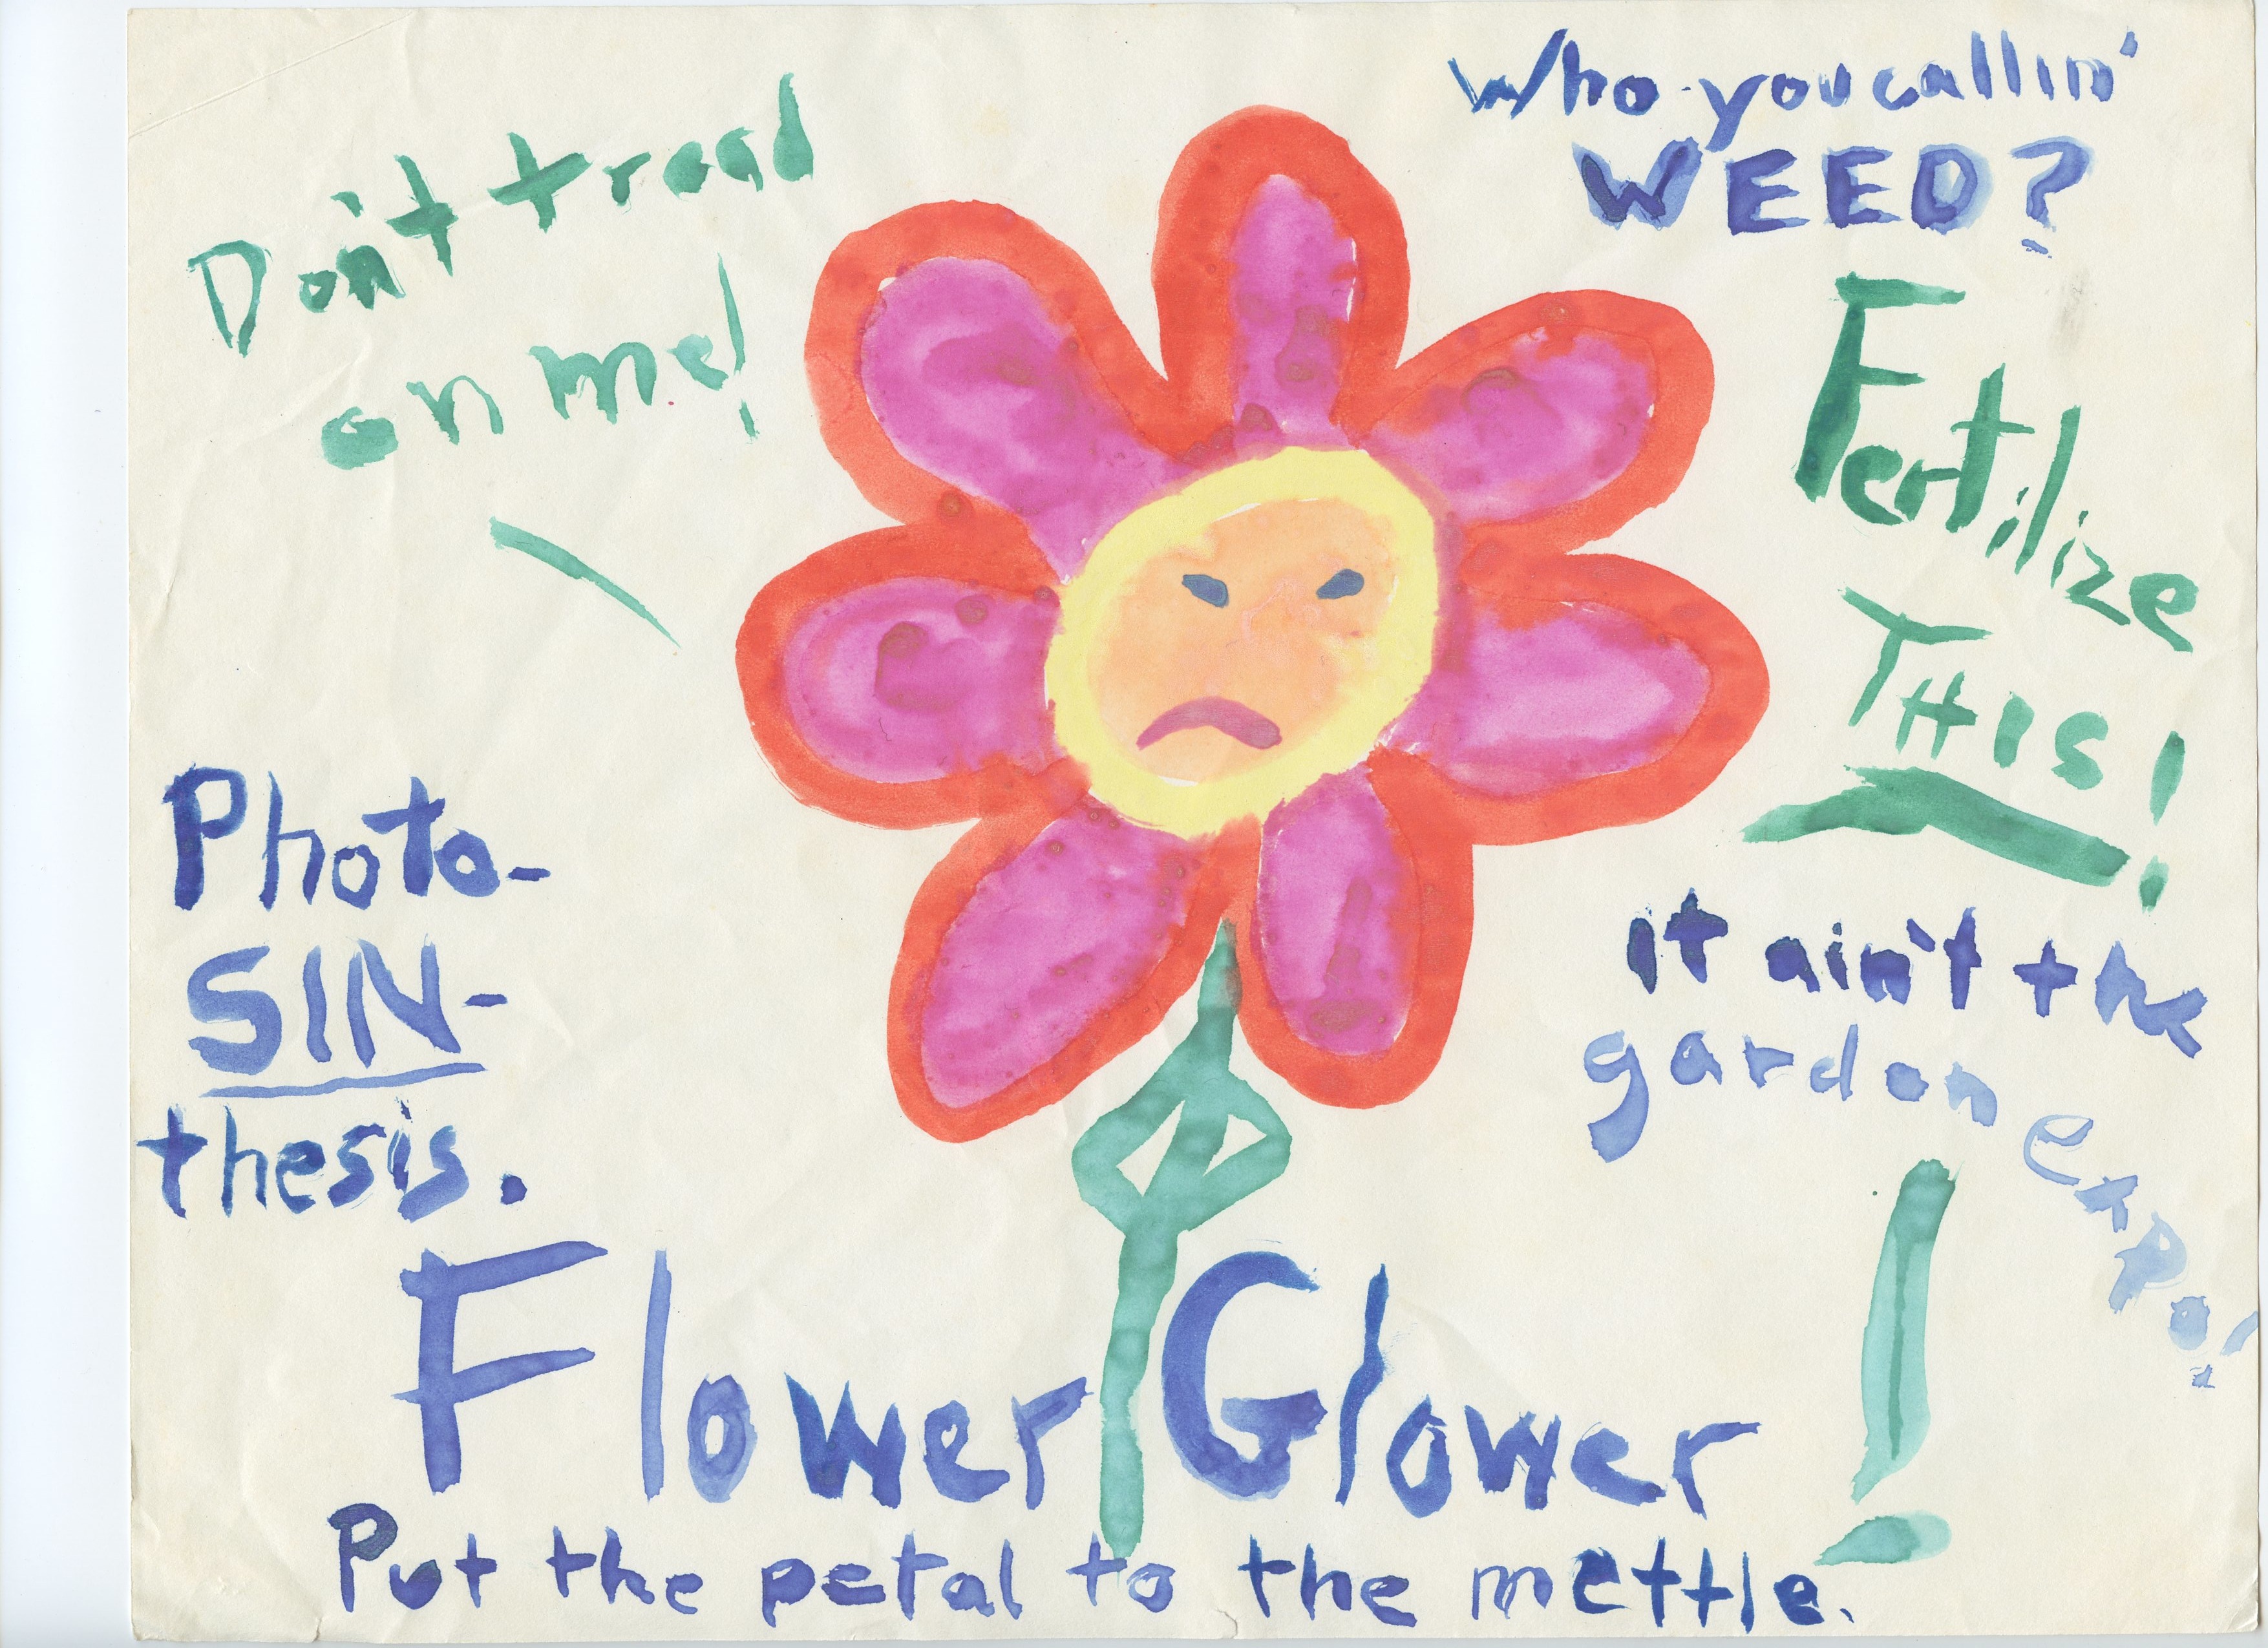 Don't tread
on me!
Who you callin'
WEED?
Fertilize
THIS!
Photo-
SIN-
thesis.
it ain't the
garden expo!
Flower Glower!
Put the petal to the mettle.